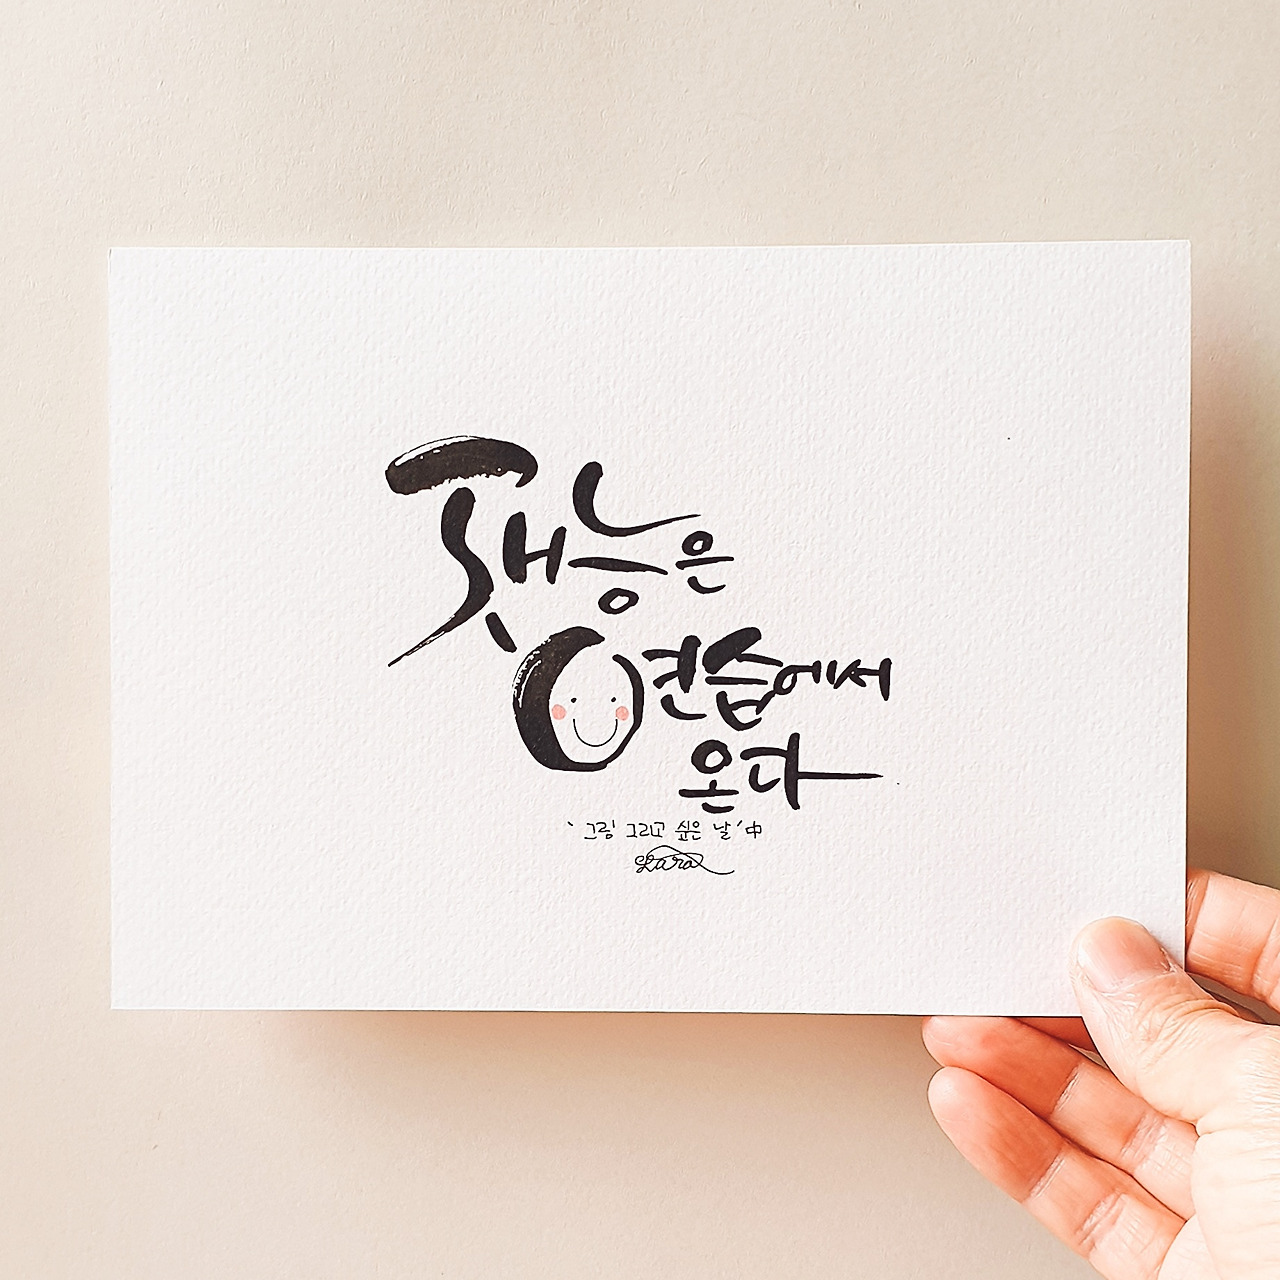 재능은
연습에서
온다
'그림 그리고 싶은 날' 中
Lara